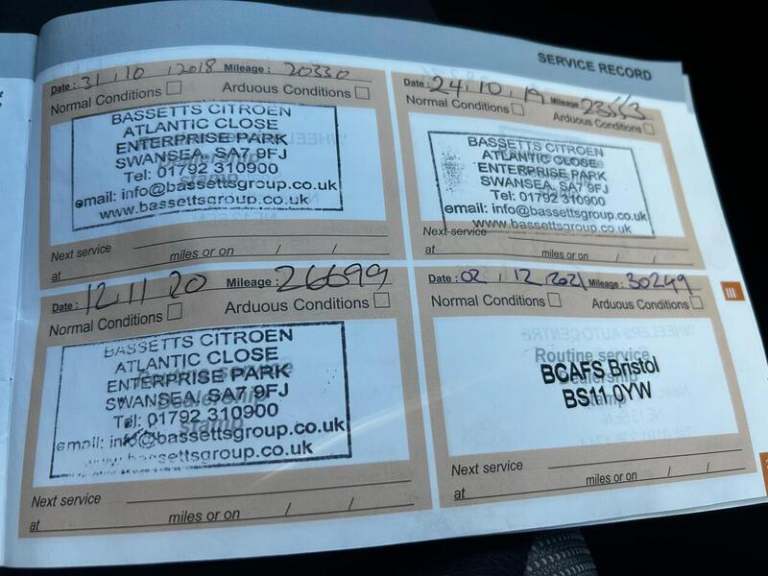 SERVICE RECORD
Date: 31 / 10 / 2018 Mileage: 20330
Normal Conditions Arduous Conditions
BASSETTS CITROEN
ATLANTIC CLOSE
ENTERPRISE PARK
SWANSEA, SA7 9FJ
Tel: 01792 310900
email: info@bassettsgroup.co.uk
www.bassettsgroup.co.uk
Next service
at miles or on / /
Date: 24.10.19 Mileage
Normal Conditions Arduous Conditions
BASSETTS CITROEN
ATLANTIC CLOSE
ENTERPRISE PARK
SWANSEA, SA7 9FJ
Tel: 01792 310900
email: info@bassettsgroup.co.uk
www.bassettsgroup.co.uk
Next service
at miles or on / /
Date: 12.11 20 Mileage: 26699
Normal Conditions Arduous Conditions
BASSETTS CITROEN
ATLANTIC CLOSE
ENTERPRISE PARK
SWANSEA, SA7 9FJ
Tel: 01792 310900
email: info@bassettsgroup.co.uk
www.bassettsgroup.co.uk
Next service
at miles or on / /
Date: 02 / 12 2021 Mileage: 30249
Normal Conditions Arduous Conditions
Routine service
Dealership
stamp
BCAFS Bristol
BS11 0YW
Next service
at miles or on / /
III